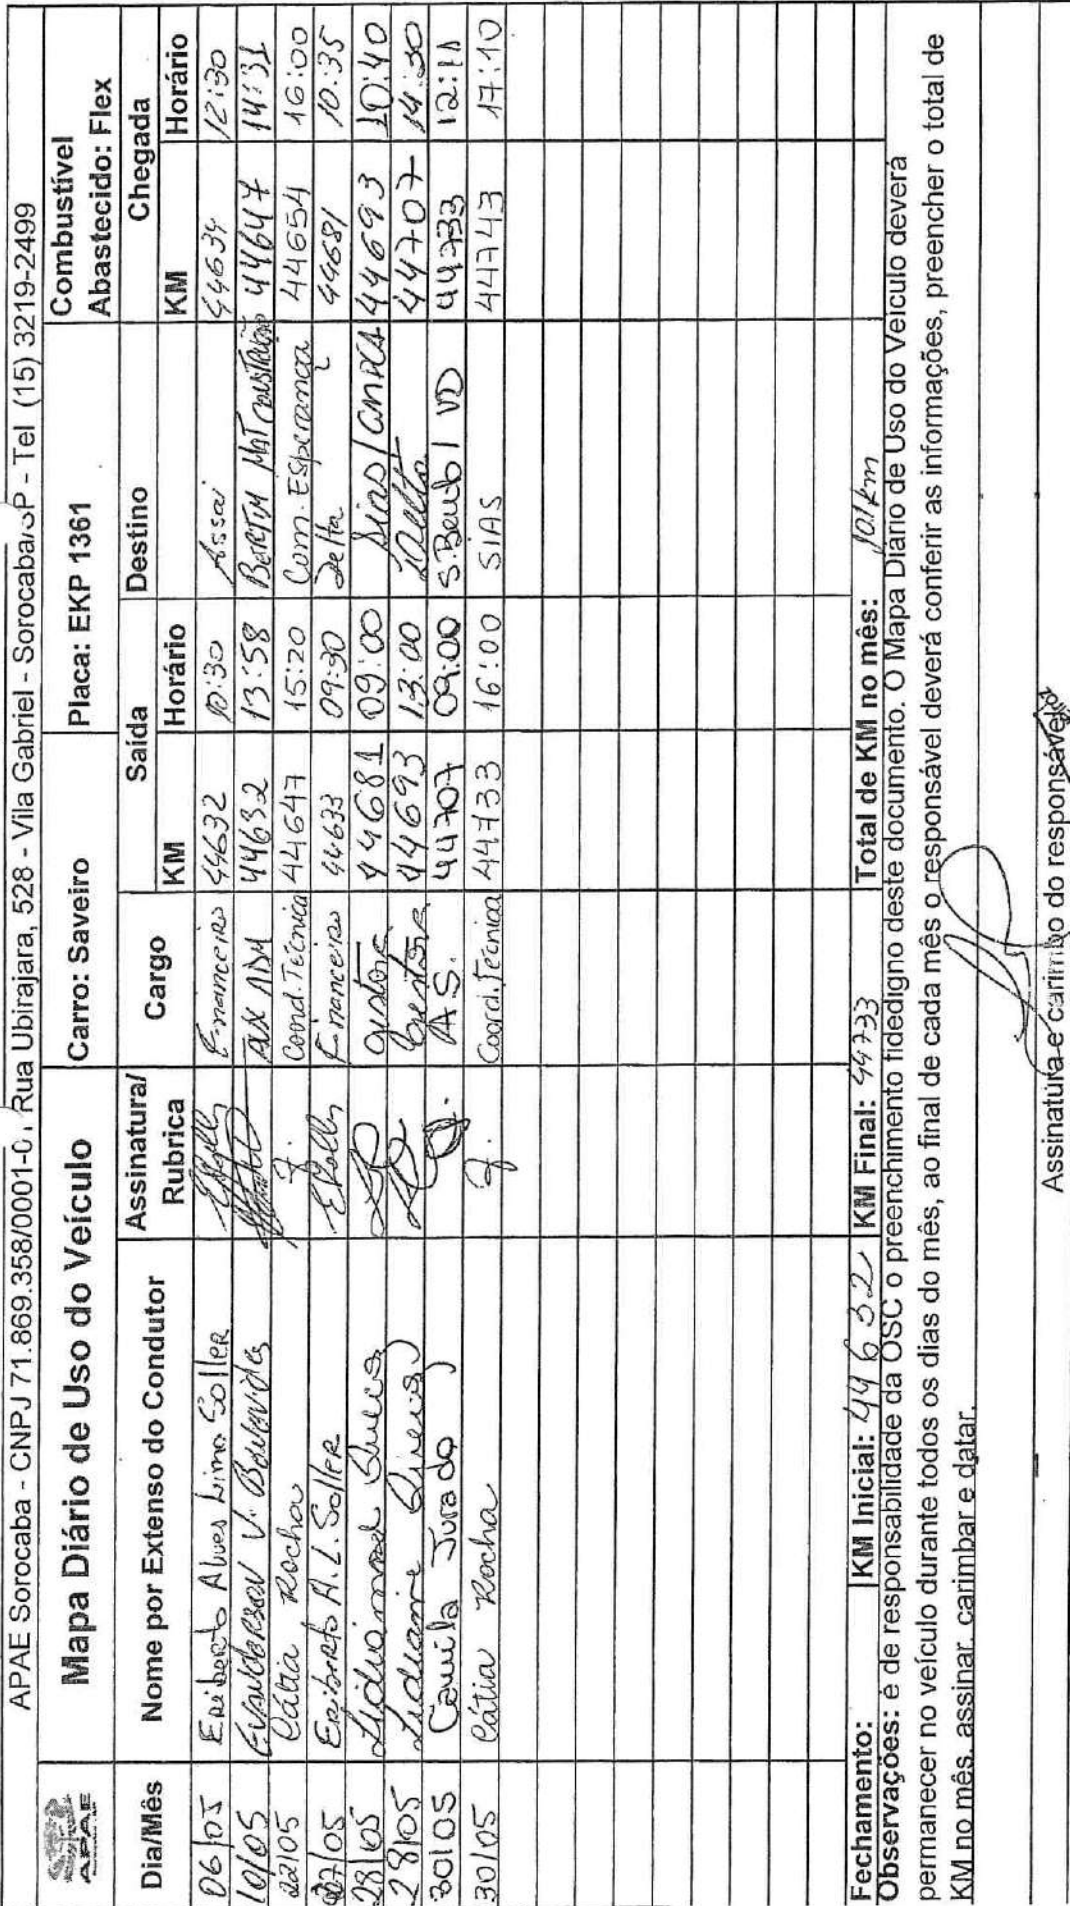 APAE Sorocaba - CNPJ 71.869.358/0001-0, Rua Ubirajara, 528 - Vila Gabriel - Sorocaba/SP - Tel (15) 3219-2499
APAE Mapa Diário de Uso do Veículo Carro: Saveiro Placa: EKP 1361 Combustível Abastecido: Flex
Dia/Mês Nome por Extenso do Condutor Assinatura/ Rubrica Cargo Saída Destino Chegada
KM Horário KM Horário
06/05 Eriberto Alves Lima Soller Financeiro 44632 10:30 Assai 44634 12:30
10/05 V. AUX ADM 44632 13:58 MAT CONSTRUÇÃO 44647 14:31
22/05 Cátia Rocha Coord. Técnica 44647 15:20 Com. Esperança 44654 16:00
27/05 Eriberto A. L. Soller Financeiro 44633 09:30 Delta 44681 10:35
28/05 Gestora 44681 09:00 /CMDCA 44693 10:40
28/05 Lidiane Gestora 44693 13:00 44707 14:30
30/05 Camila Jurado A.S. 44707 09:00 S.Bento / VD 44733 12:11
30/05 Cátia Rocha Coord. Técnica 44733 16:00 SIAS 44743 17:10
Fechamento: KM Inicial: 44632 KM Final: 44733 Total de KM no mês: 101km
Observações: é de responsabilidade da OSC o preenchimento fidedigno deste documento. O Mapa Diário de Uso do Veículo deverá
permanecer no veículo durante todos os dias do mês, ao final de cada mês o responsável deverá conferir as informações, preencher o total de
KM no mês, assinar, carimbar e datar.
Assinatura e carimbo do responsável